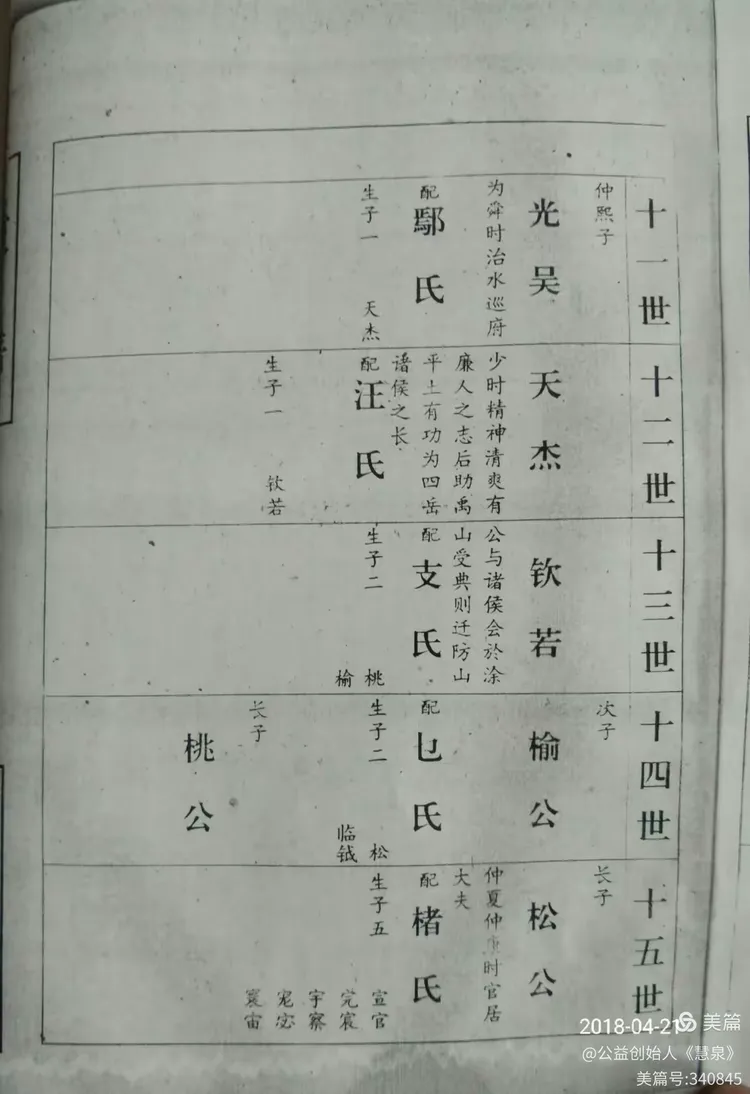 十一世
仲熙子
光吴
为舜时治水巡府
配
鄢氏
生子一
天杰
十二世
天杰
少时精神清爽有
廉人之志后助禹
平土有功为四岳
诸侯之长
配
汪氏
生子一
钦若
十三世
钦若
公与诸侯会於涂
山受典则迁防山
配
支氏
生子二
桃
榆
十四世
次子
榆公
配
乜氏
生子二
松
临钺
长子
桃公
十五世
长子
松公
仲夏仲康时官居
大夫
配
楮氏
生子五
宣官
宸
宇察
宠
寰宙
2018-04-21
美篇
@公益创始人《慧泉》
美篇号:340845